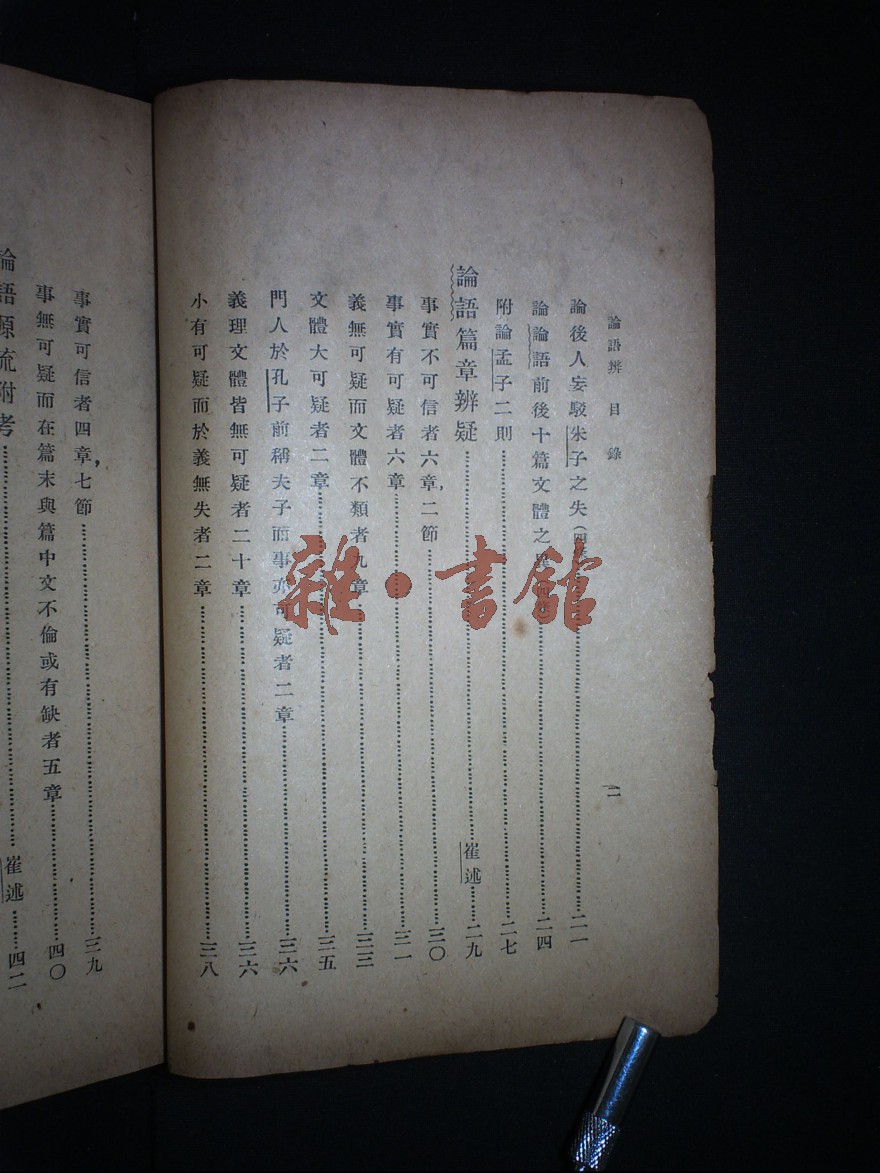 論語辨 目錄 二
論後人妄駁朱子之失(四
論論語前後十篇文體之異……二四
附論孟子二則……二七
論語篇章辨疑……崔述……二九
事實不可信者六章,二節……三〇
事實有可疑者六章……三一
義無可疑而文體不類者九章……三三
文體大可疑者二章……三五
門人於孔子前稱夫子而事亦可疑者二章……三六
義理文體皆無可疑者二十章……三六
小有可疑而於義無失者二章……三八
事實可信者四章,七節……三九
事無可疑而在篇末與篇中文不倫或有缺者五章……四〇
論語源流附考……崔述……四二
雜·書館